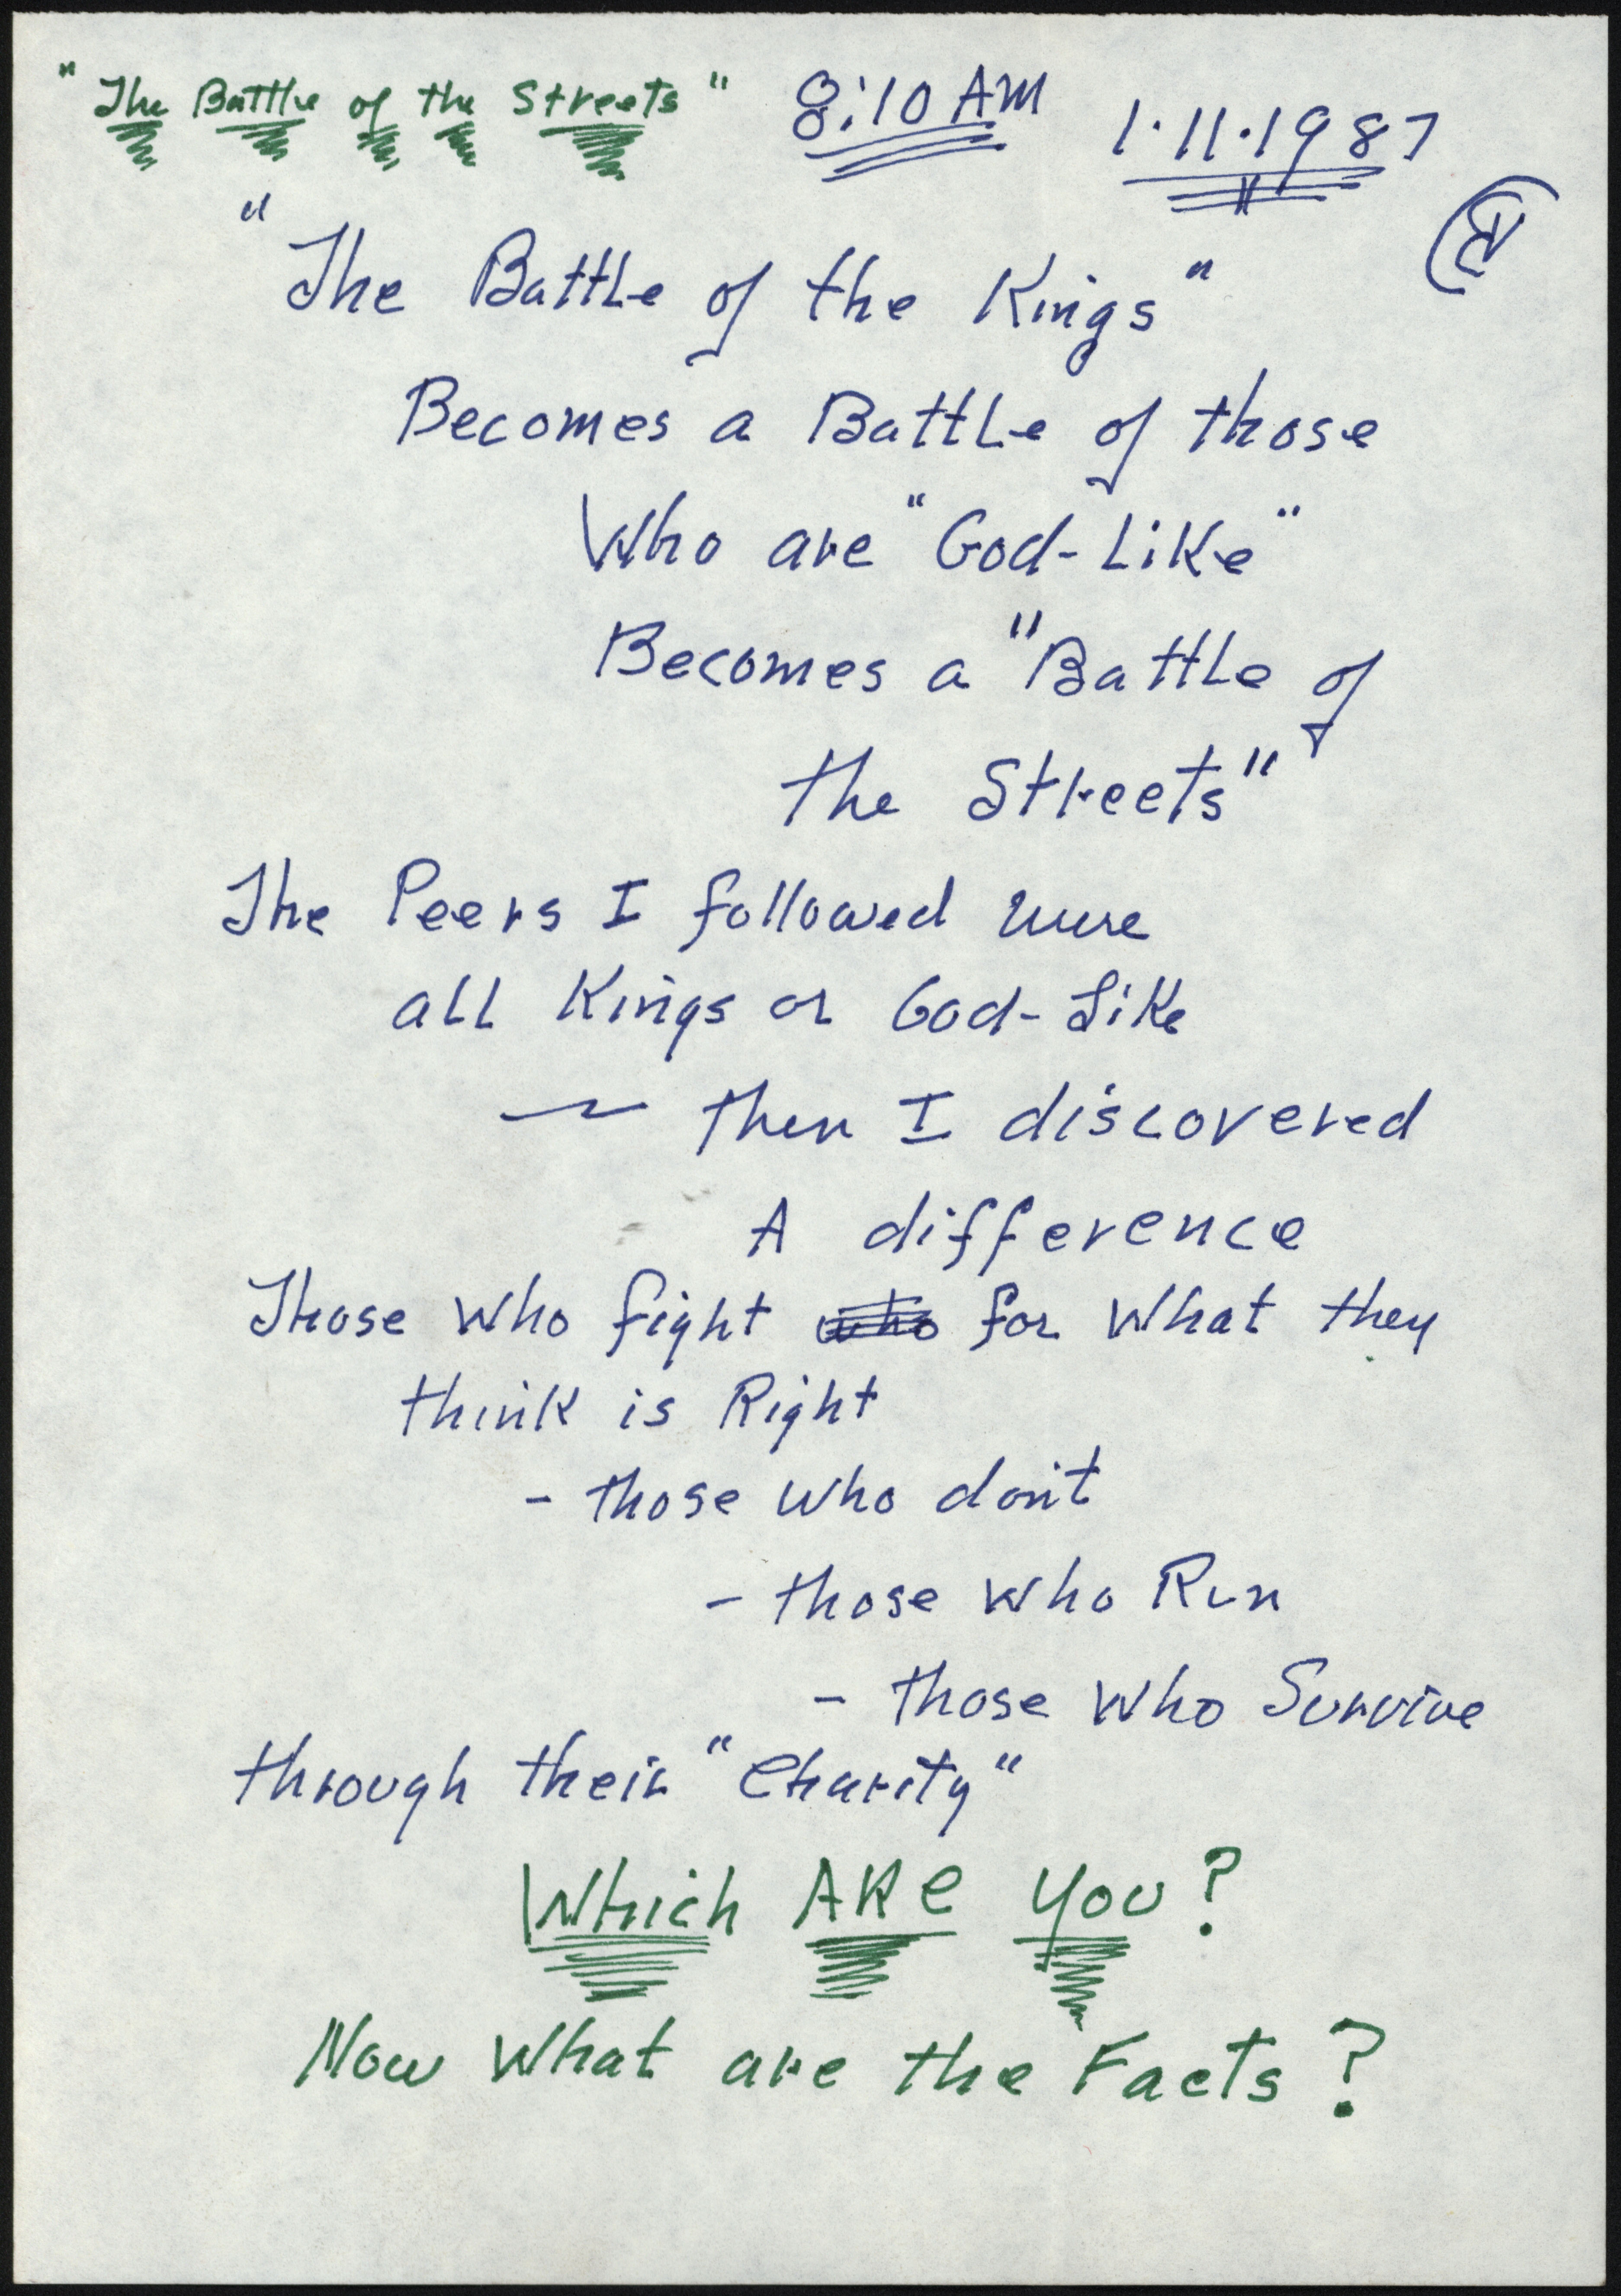 "The Battle of the Streets" 8:10 AM 1.11.1987
"The Battle of the Kings"
Becomes a Battle of those
Who are "God-Like"
Becomes a "Battle of
the Streets"
The Peers I followed were
all Kings or God-Like
— then I discovered
A difference
Those who fight who for what they
think is Right
- those who don't
- those who Run
- those who Survive
through their "Charity"
Which ARe you?
Now what are the Facts?